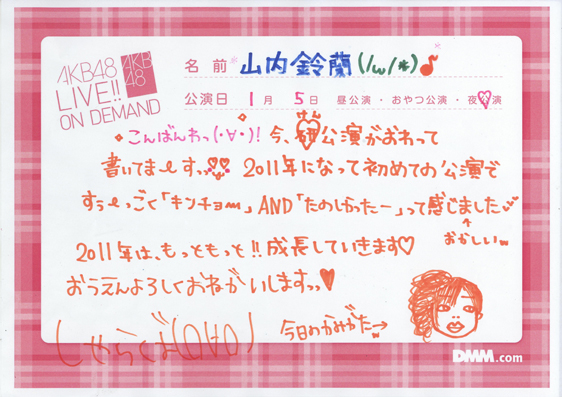 AKB48
LIVE!!
ON DEMAND
AKB
48
名前 山内鈴蘭(/ω/*)♪
公演日 1月 5日 昼公演・おやつ公演・夜公演
こんばんわっ(・∀・)! 今、研公演がおわって
けん
書いてまーすっ 2011年になって初めての公演で
すぅーっごく「キンチョーm」AND「たのしかったー」って感じました
↑
おかしいw
2011年は、もっともっと!!成長していきます♡
おうえんよろしくおねがいしますっっ♥
しゃらくば(0∀0)
今日のかみがた→
DMM.com